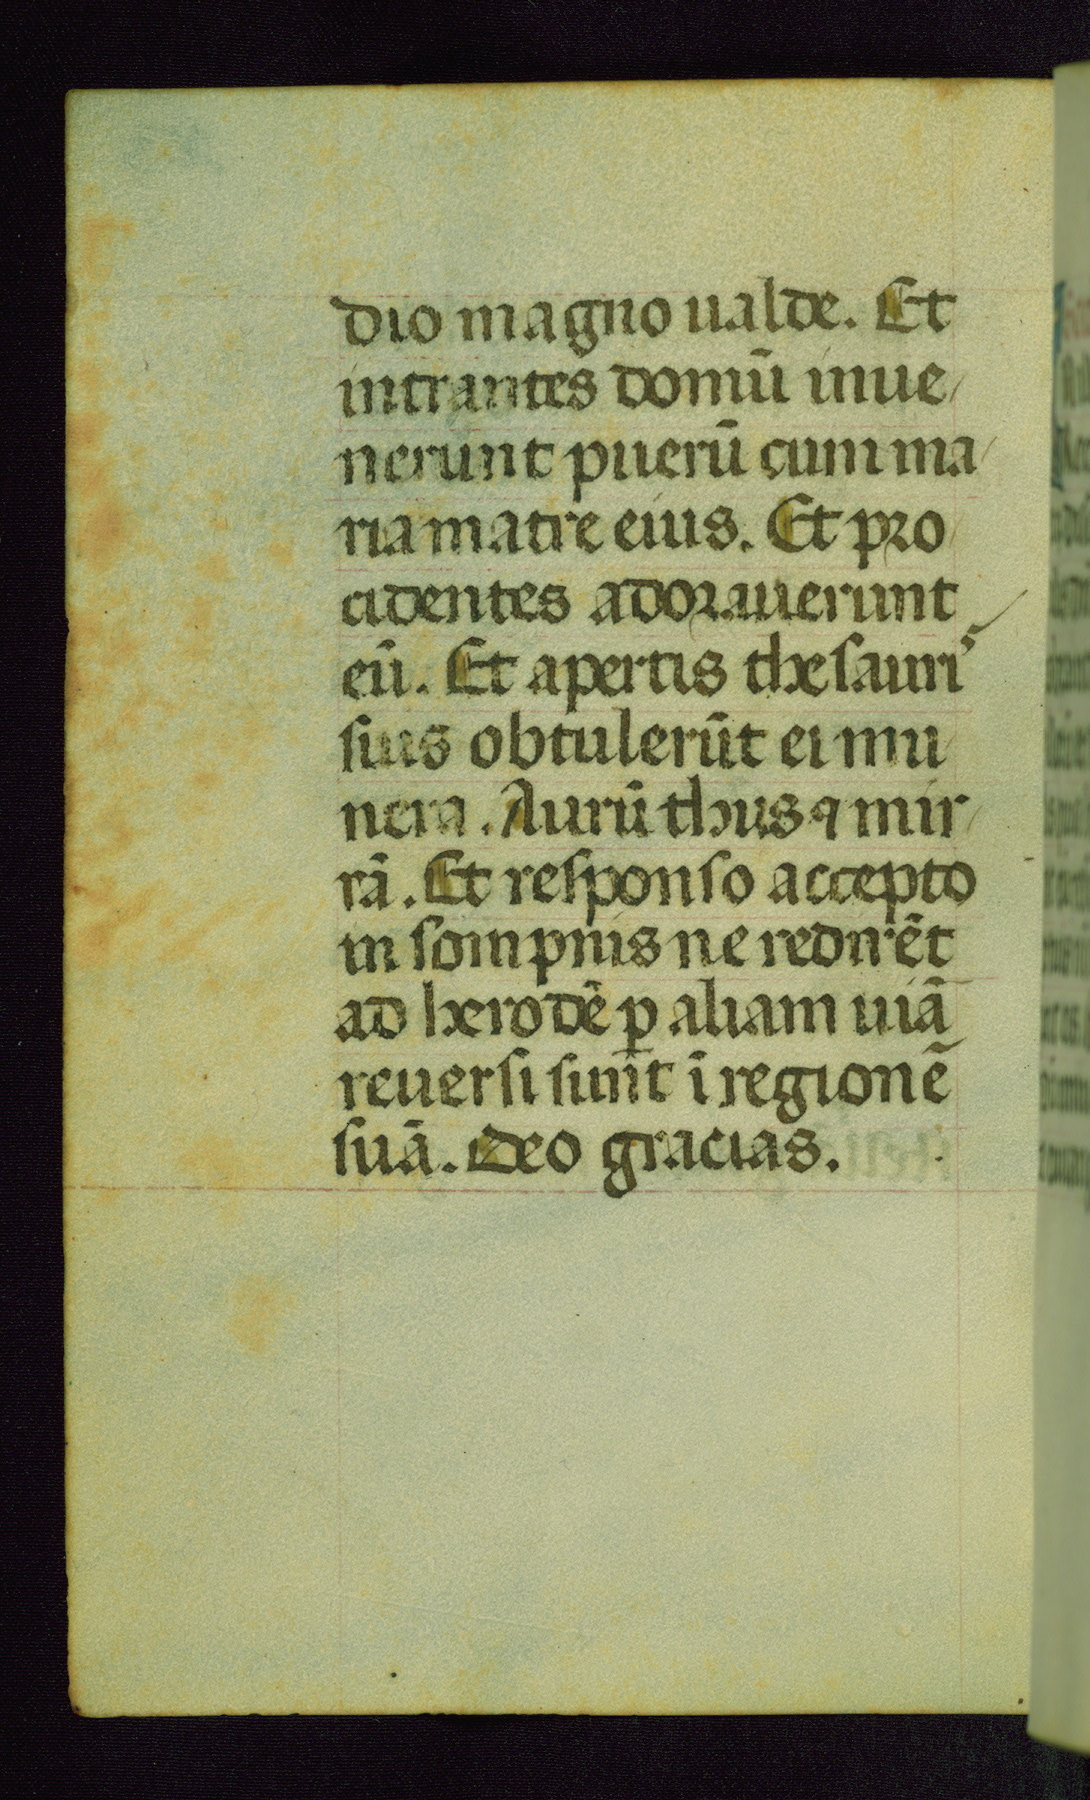 dio magno ualde. Et
intrantes domū inue
nerunt puerū cum ma
ria matre eius. Et pro
cidentes adorauerunt
eū. Et apertis thesauris
suis obtulerūt ei mu
nera. Aurū thus ⁊ mir
rā. Et responso accepto
in sompnis ne redirēt
ad herodē ꝑ aliam uiā
reuersi sunt ī regionē
suā. Deo gracias.